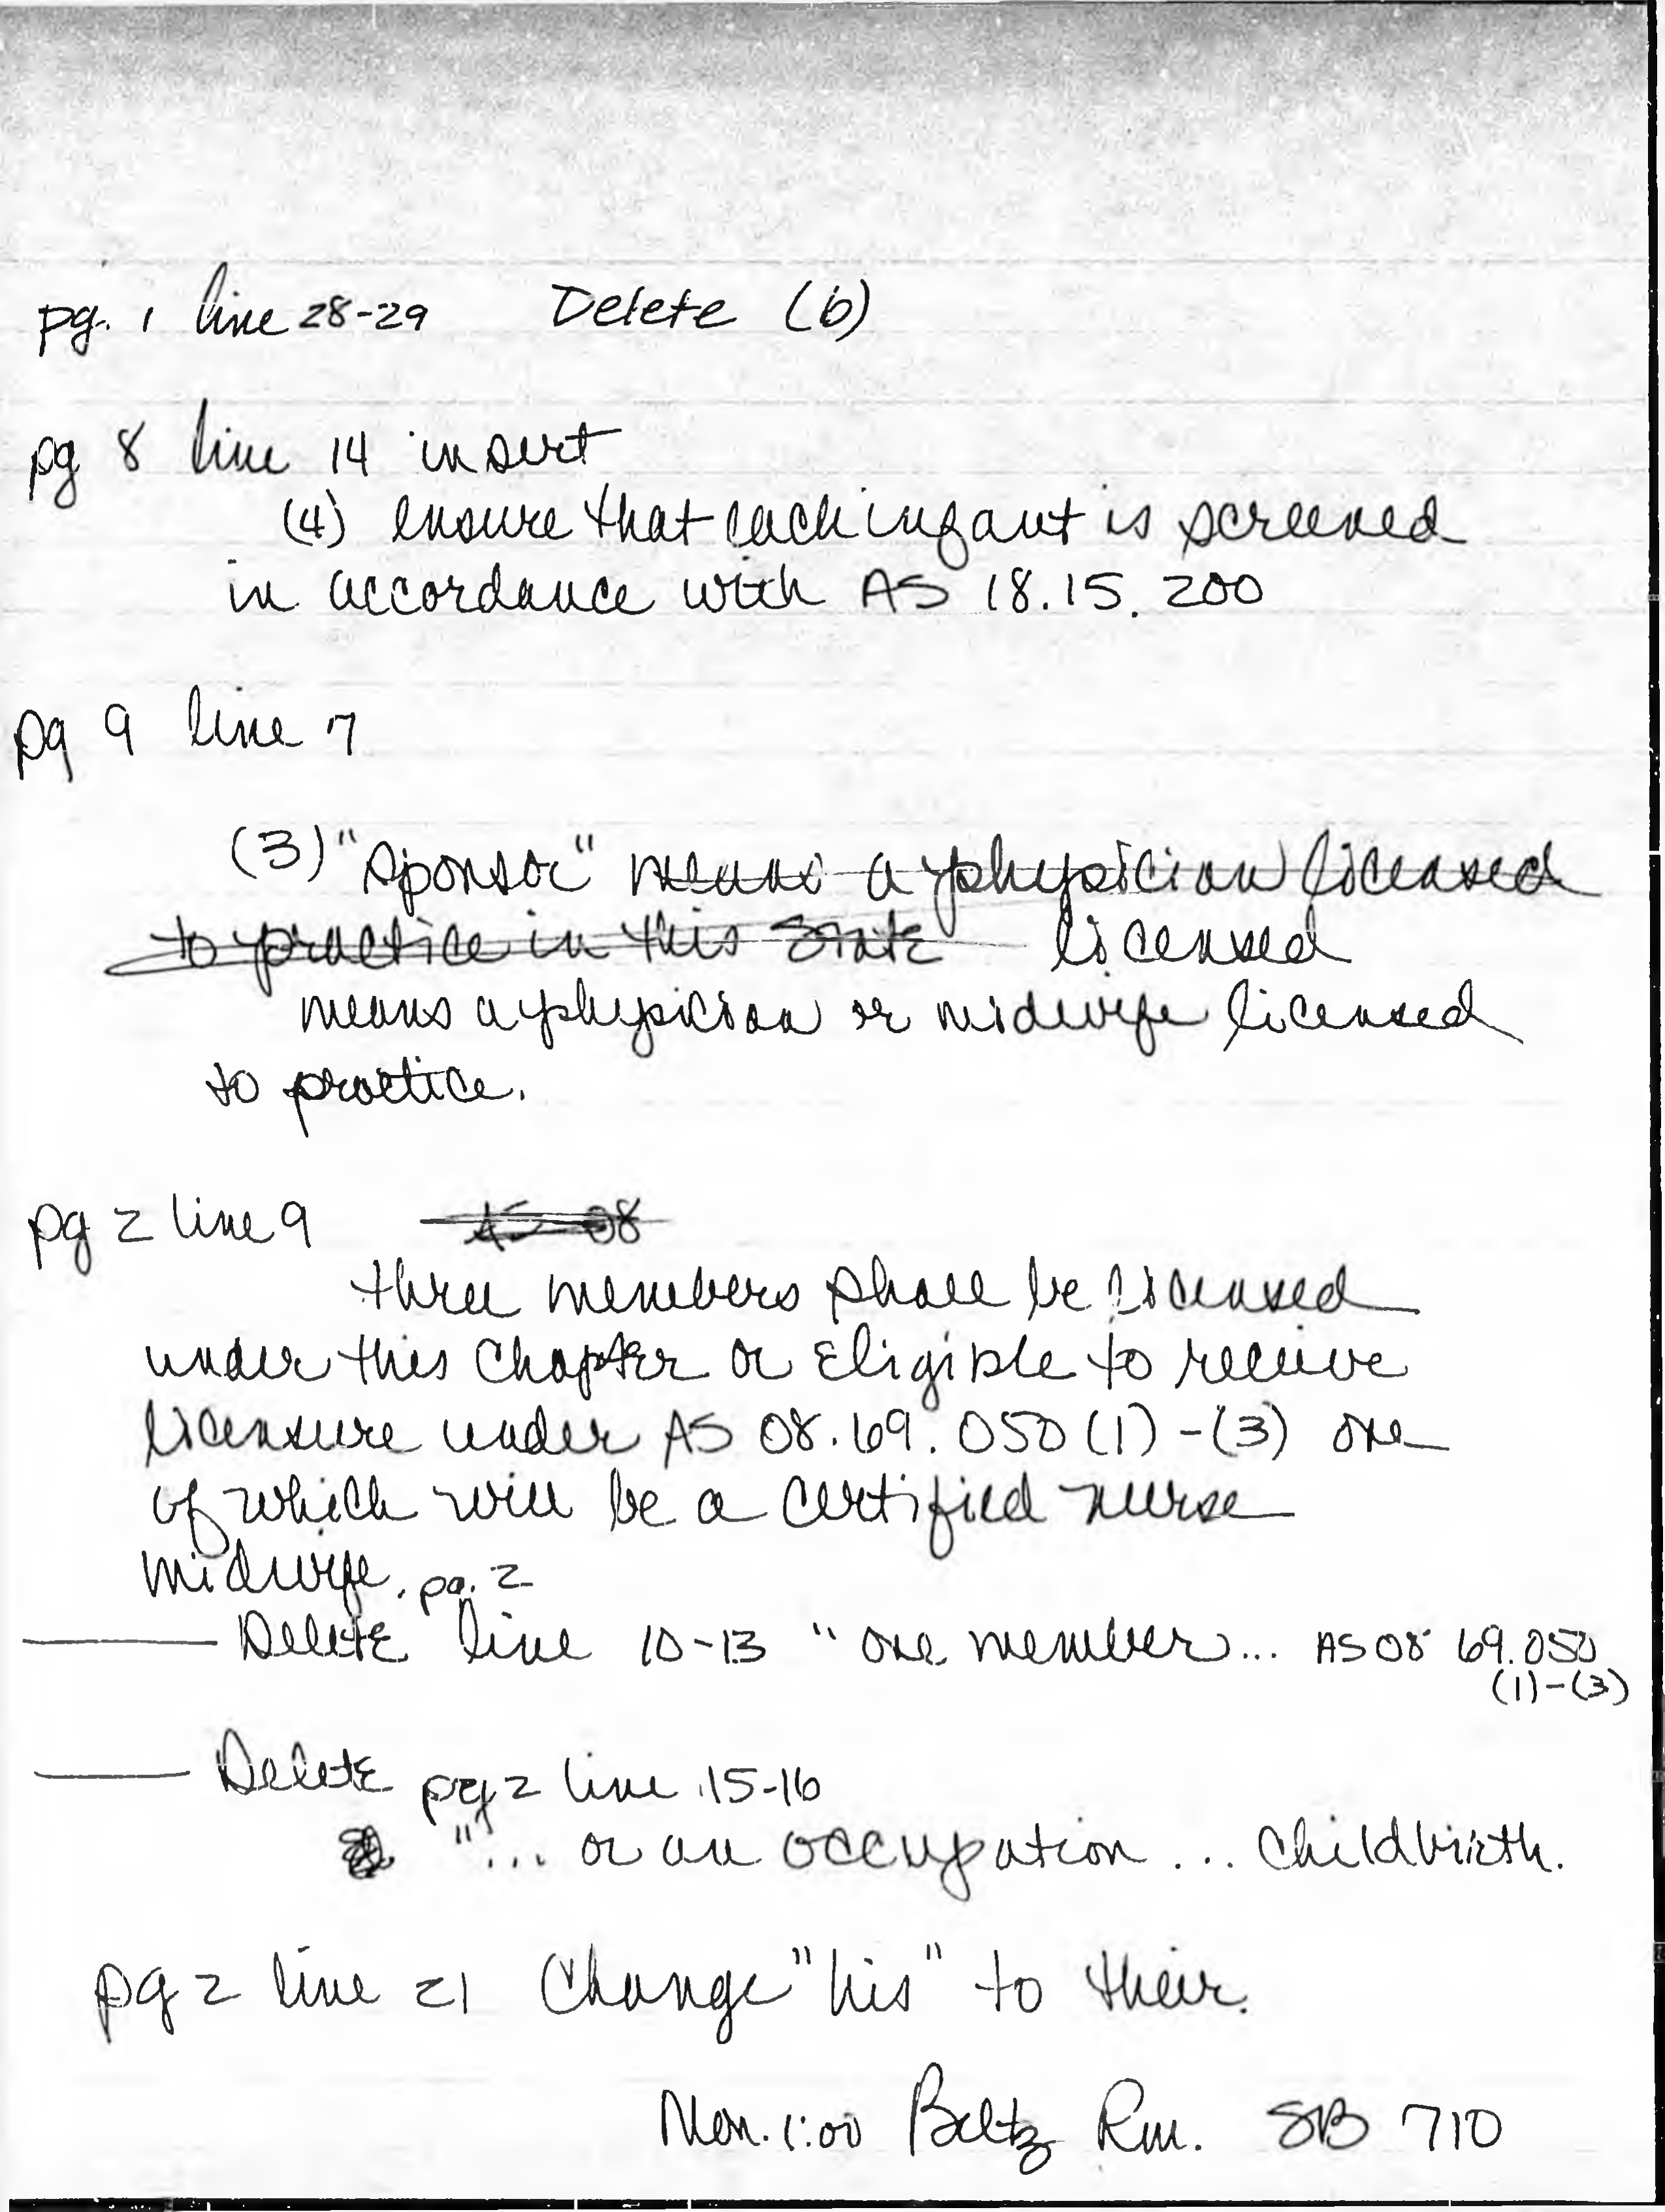 pg. 1 line 28-29 Delete (b)
pg 8 line 14 insert
(4) ensure that each infant is screened
in accordance with AS 18.15.200
pg 9 line 7
(3) "Sponsor" means a physician licensed
to practice in this State licensed
means a physician or midwife licensed
to practice.
pg 2 line 9 AS 08
three members shall be licensed
under this Chapter or Eligible to receive
licensure under AS 08.69.050 (1)-(3) one
of which will be a certified nurse
midwife. pg. 2
Delete line 10-13 "one member... AS 08 69.050
(1)-(3)
Delete pg 2 line 15-16
"... or an occupation ... Childbirth.
pg 2 line 21 Change "his" to their.
Mon. 1:00 Beltz Rm. SB 710